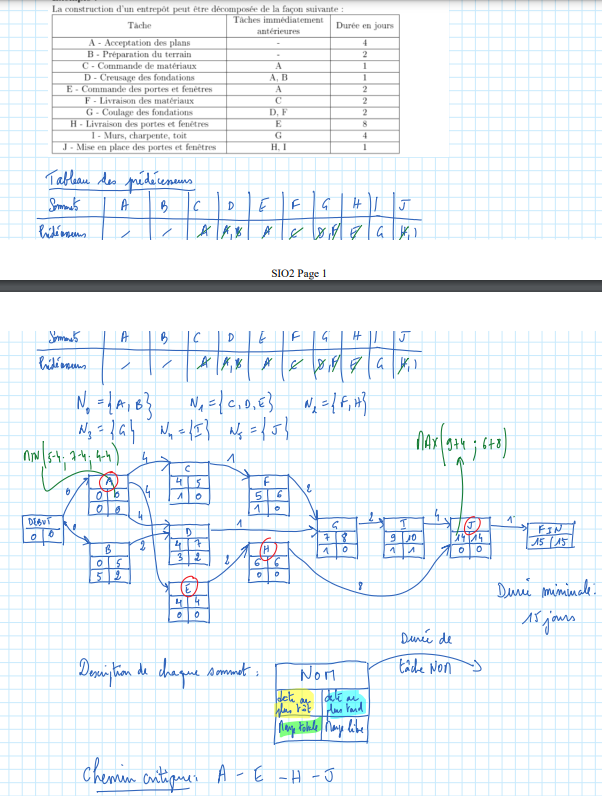 La construction d'un entrepôt peut être décomposée de la façon suivante :
Tâche | Tâches immédiatement antérieures | Durée en jours
A - Acceptation des plans | - | 4
B - Préparation du terrain | - | 2
C - Commande de matériaux | A | 1
D - Creusage des fondations | A, B | 1
E - Commande des portes et fenêtres | A | 2
F - Livraison des matériaux | C | 2
G - Coulage des fondations | D, F | 2
H - Livraison des portes et fenêtres | E | 8
I - Murs, charpente, toit | G | 4
J - Mise en place des portes et fenêtres | H, I | 1
Tableau des prédécesseurs
Sommets | A | B | C | D | E | F | G | H | I | J
Prédécesseurs | / | / | A | A, B | A | C | D, F | E | G | H, I
SIO2 Page 1
Sommets | A | B | C | D | E | F | G | H | I | J
Prédécesseurs | / | / | A | A, B | A | C | D, F | E | G | H, I
N0 = {A, B} N1 = {C, D, E} N2 = {F, H}
N3 = {G} N4 = {I} N5 = {J}
MIN(5-4; 7-4; 4-4)
MAX(9+4; 6+8)
DEBUT
0 0
0
0
A
0 0
0 0
B
0 5
5 2
4
4
4
2
C
4 5
1 0
D
4 7
3 2
E
4 4
0 0
1
1
2
F
5 6
1 0
H
6 6
0 0
2
8
G
7 8
1 0
2
I
9 10
1 1
4
J
14 14
0 0
1
FIN
15 15
Durée minimale :
15 jours
Description de chaque sommet :
NOM
date au plus tôt | date au plus tard
Marge totale | Marge libre
Durée de
tâche NOM
Chemin critique : A - E - H - J